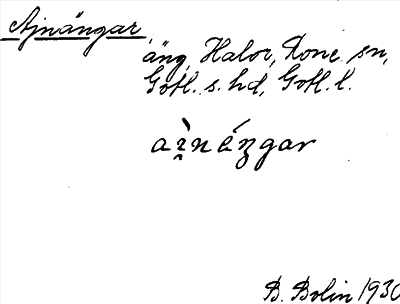 Ajnängar
äng, Halor, Rone sn,
Gotl. s. hd, Gotl. l.
aì̯néŋgar
B. Bolin 1930